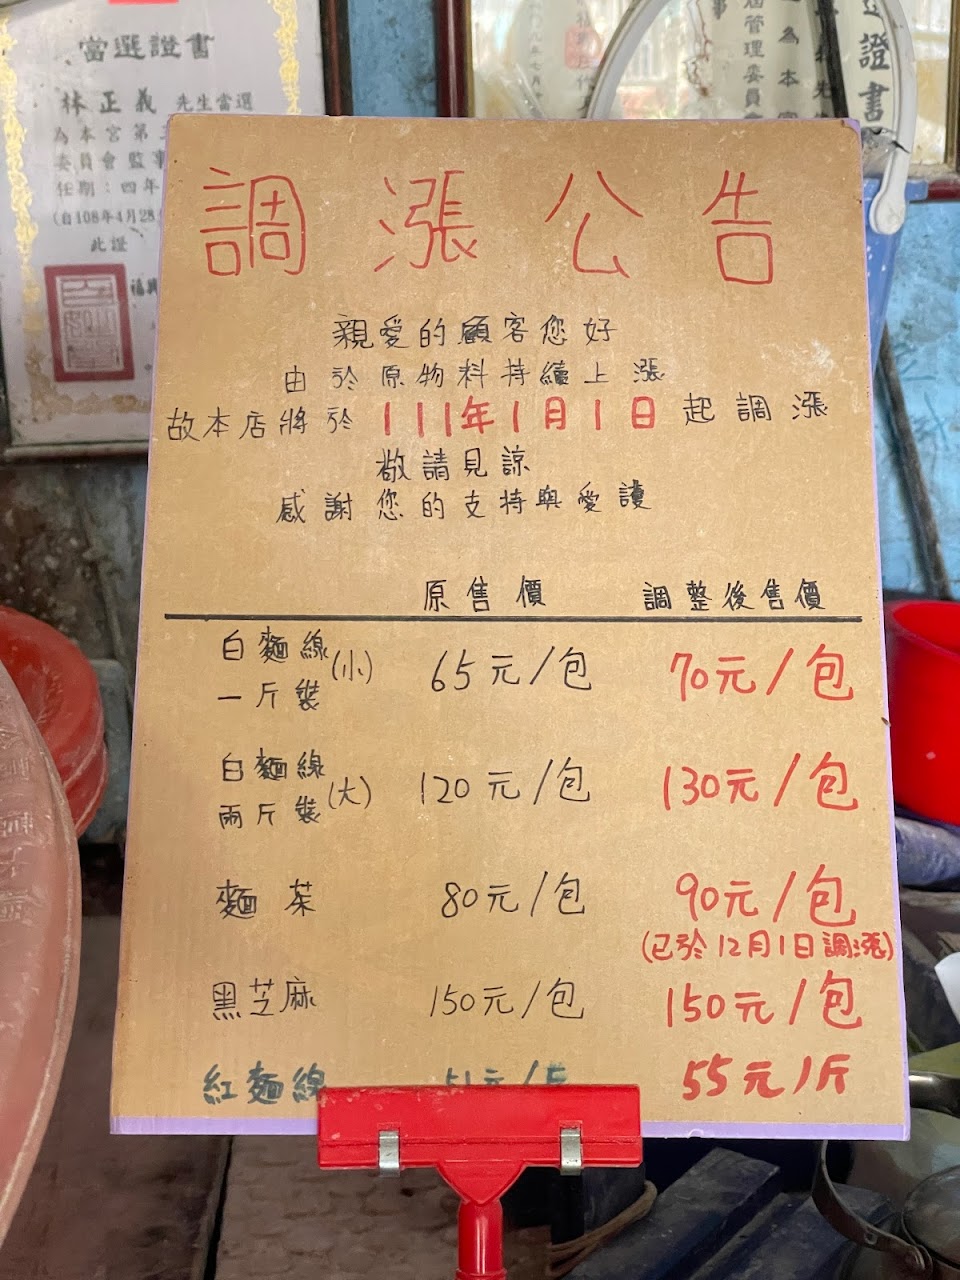 當選證書
林正義 先生當選
為本宮第
委員會監事
任期：四年
(自108年4月28
此證
福興
證書
為本
管理委員會
調漲公告
親愛的顧客您好
由於原物料持續上漲
故本店將於111年1月1日起調漲
敬請見諒
感謝您的支持與愛護
原售價 調整後售價
白麵線(小) 65元/包 70元/包
一斤裝
白麵線(大) 120元/包 130元/包
兩斤裝
麵茶 80元/包 90元/包
(已於12月1日調漲)
黑芝麻 150元/包 150元/包
紅麵線 51元/斤 55元/斤